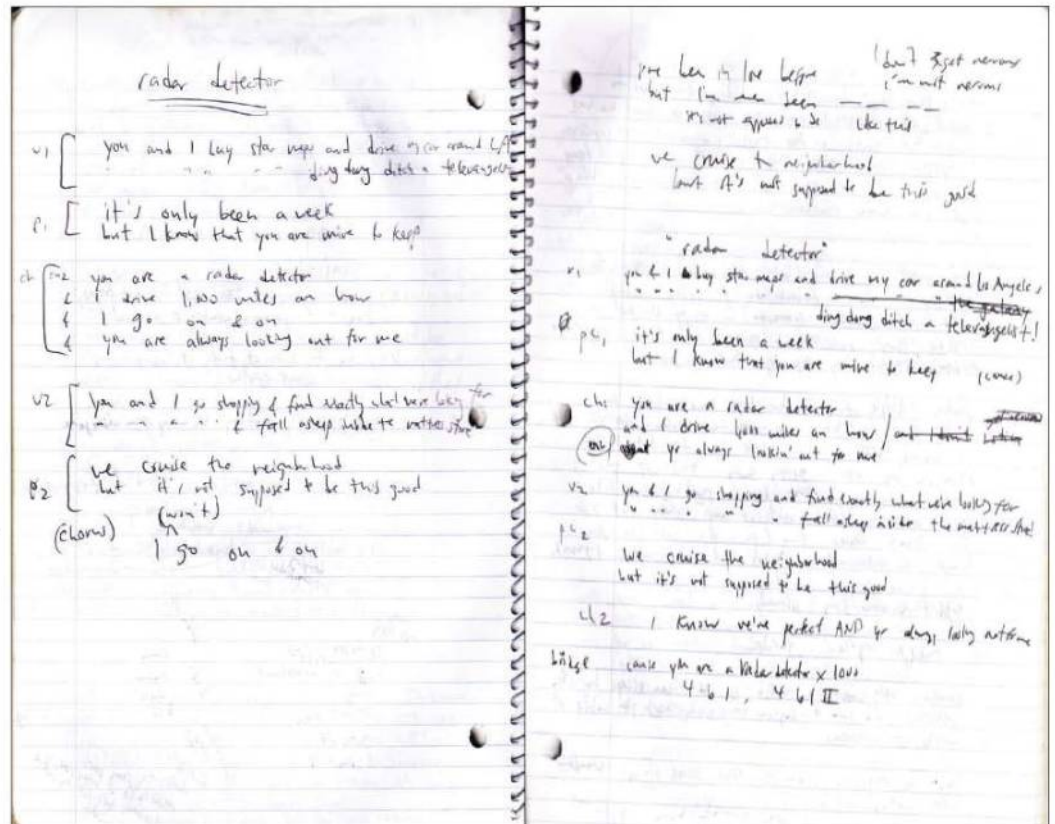 radar detector
v1 you and I buy star maps and drive my car around LA
" " " " ding dong ditch a televangelist
P1 it's only been a week
but I know that you are mine to keep
ch you are a radar detector
& I drive 1,000 miles an hour
& I go on & on
& you are always looking out for me
v2 you and I go shopping & find exactly what we're looking for
" " " " & fall asleep inside the mattress store
P2 we cruise the neighborhood
but it's not supposed to be this good
(chorus) (won't)
go on & on
I've been in love before
but I've never been — — — —
it's not supposed to be like this
(don't get nervous
i'm not nervous
we cruise the neighborhood
but it's not supposed to be this good
"radar detector"
v1 you & I buy star maps and drive my car around los Angeles,
" " " " "
ding dong ditch a televangelist!
pc1 it's only been a week
but I know that you are mine to keep
ch1 you are a radar detector
and I drive 1,000 miles an hour / and I don't
yr always lookin' out for me
v2 you & I go shopping and find exactly what we're looking for
" " " " " fall asleep inside the mattress store!
pc2
we cruise the neighborhood
but it's not supposed to be this good
ch2 I know we're perfect AND yr always looking out for me
bridge cause you are a radar detector x 1000
4 6 1, 4 6 1 II